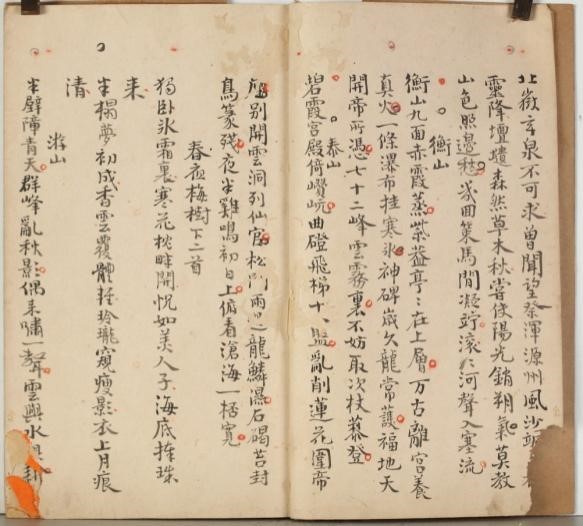 北嶽玄泉不可求曽聞望祭渾源州風沙
靈降壇壝森然草木秋嘗使陽光銷朔氣莫教
山色照邊愁幾回策馬閒凝竚滾滾河聲入塞流
衡山
衡山九面赤霞蒸紫葢亭亭在上層万古離宫養
真火一條瀑布挂寒氷神碑歲久龍常護福地天
開帝所憑七十二峰雲霧裏不妨取次杖藜登
泰山
碧霞宫殿倚巑岏曲磴飛梯十八盤亂削蓮花圍帝
座别開雲洞列仙官松間雨過龍鱗濕石碣苔封
鳥篆殘夜半雞鳴初日上俯看滄海一桮寬
春夜梅樹下二首
獨卧氷霜裏寒花枕畔開怳如美人子海底捧珠
来
半榻夢初成香雲覆體輕玲瓏窺瘦影衣上月痕
清
游山
半壁障青天群峰亂秋影偶来嘯一聲雲與水